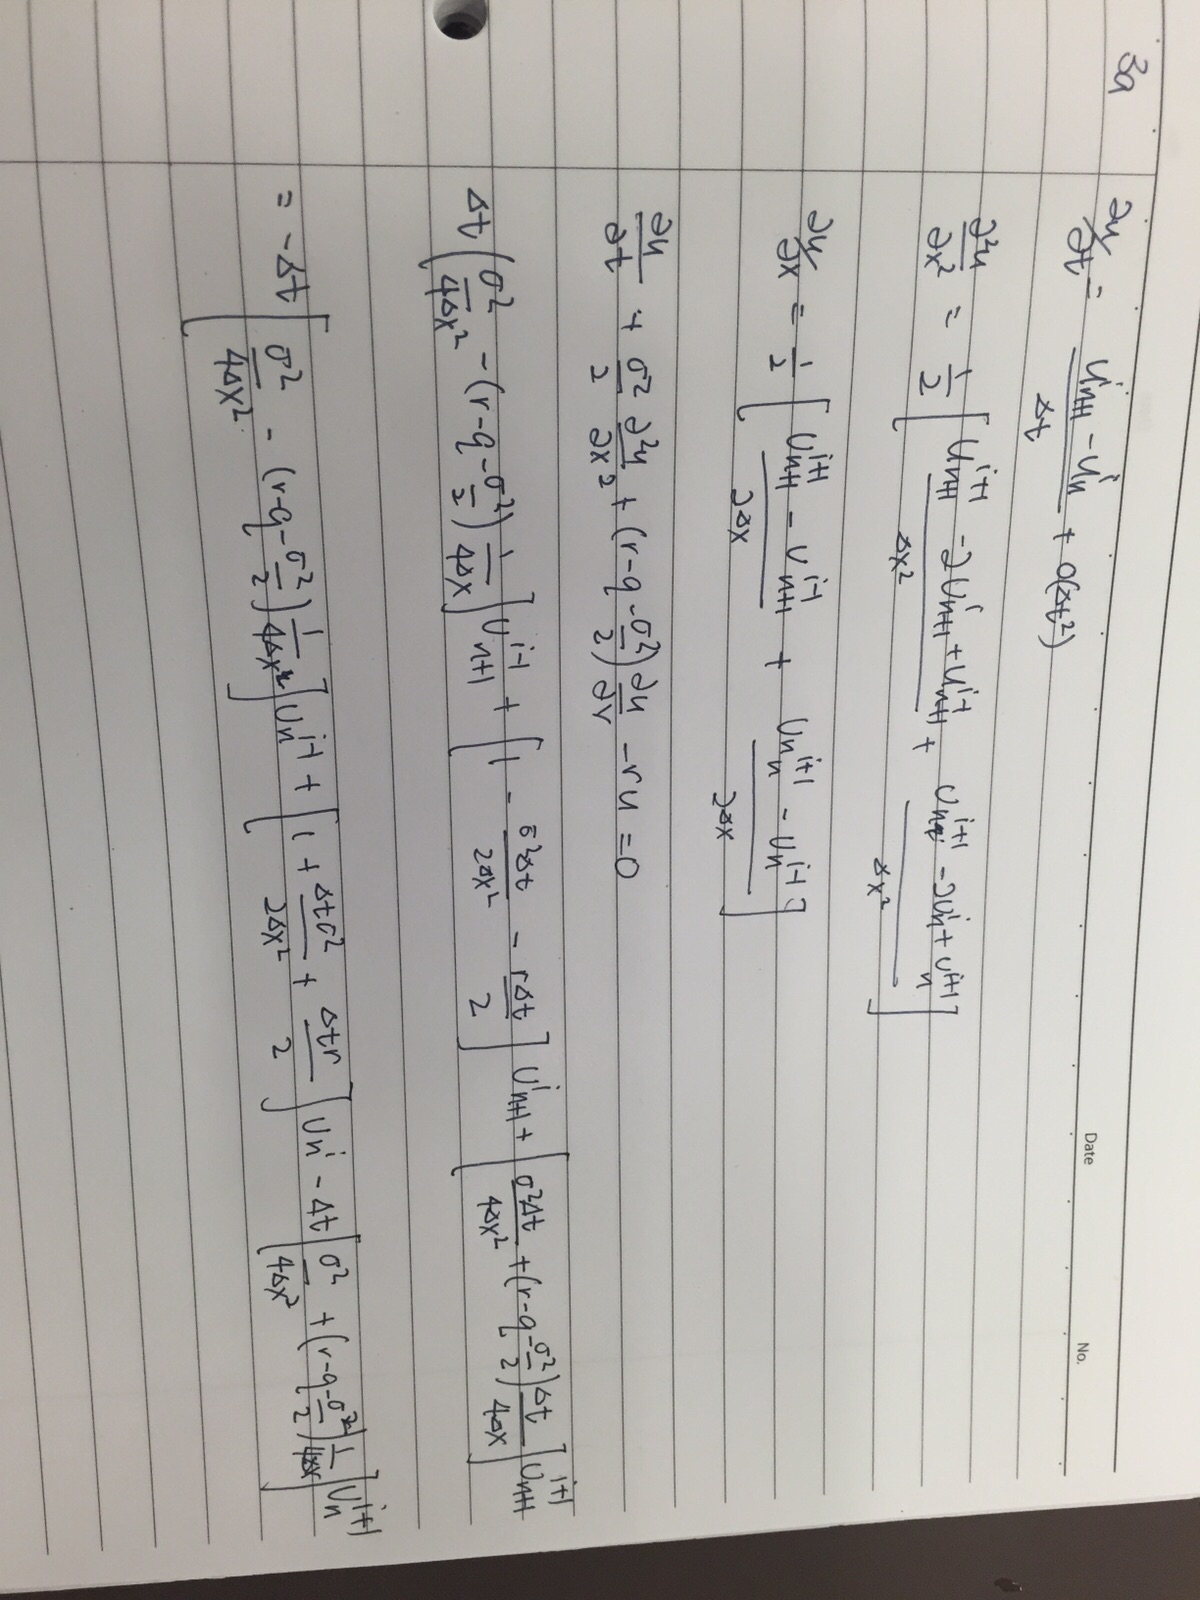 Date No.
3a
∂u/∂t = (u^i_{n+1} - u^i_n)/Δt + O(Δt²)
∂²u/∂x² = 1/2 [ (U^{i+1}_{n+1} - 2U^i_{n+1} + U^{i-1}_{n+1})/Δx² + (U^{i+1}_n - 2U^i_n + U^{i+1}_n)/Δx² ]
∂u/∂x = 1/2 [ (U^{i+1}_{n+1} - U^{i-1}_{n+1})/2Δx + (U^{i+1}_n - U^{i-1}_n)/2Δx ]
∂u/∂t + σ²/2 ∂²u/∂x² + (r-q-σ²/2) ∂u/∂x - ru = 0
Δt [ σ²/4Δx² - (r-q-σ²/2) 1/4Δx ] U^{i-1}_{n+1} + [ 1 - σ²Δt/2Δx² - rΔt/2 ] U^i_{n+1} + [ σ²Δt/4Δx² + (r-q-σ²/2) Δt/4Δx ] U^{i+1}_{n+1}
= -Δt [ σ²/4Δx² - (r-q-σ²/2) 1/4Δx ] U^{i-1}_n + [ 1 + Δtσ²/2Δx² + Δtr/2 ] U^i_n - Δt [ σ²/4Δx² + (r-q-σ²/2) 1/4Δx ] U^{i+1}_n